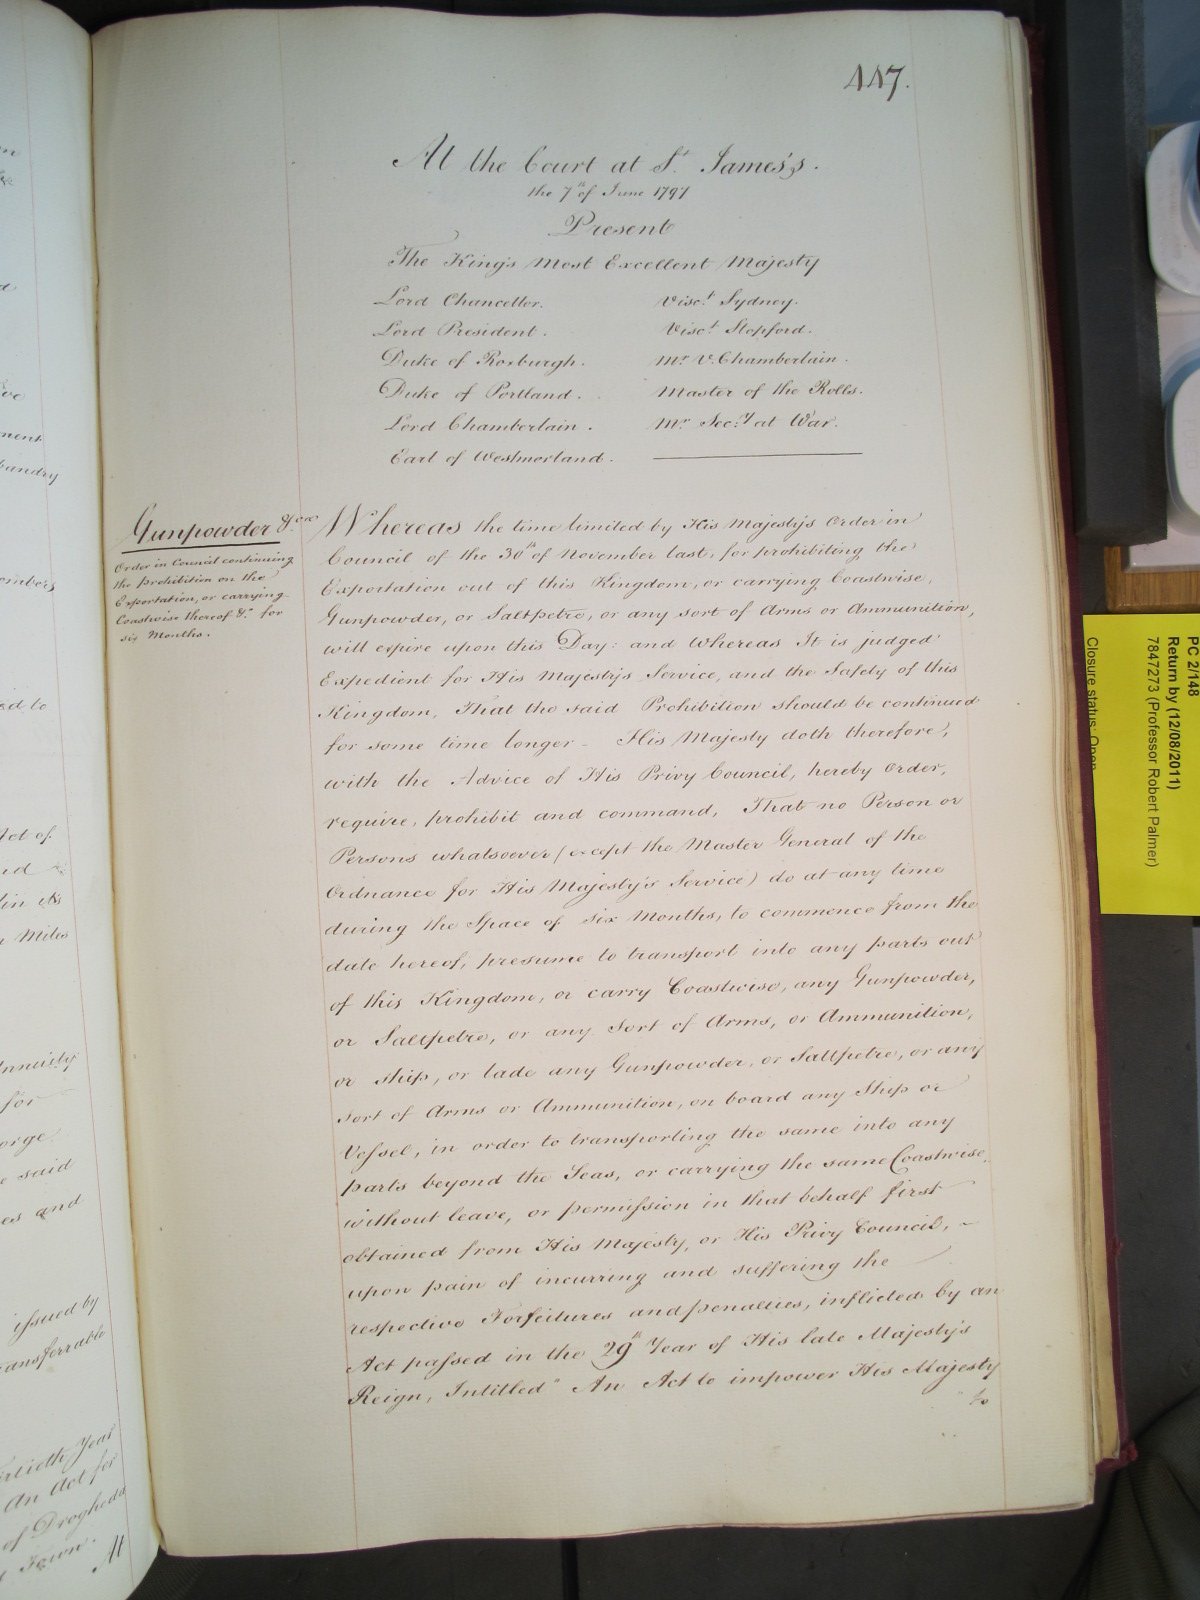 447.
At the Court at St. James's.
the 7th of June 1797
Present
The King's Most Excellent Majesty
Lord Chancellor. Visct. Sydney.
Lord President. Visct. Stopford.
Duke of Roxburgh. Mr. V. Chamberlain.
Duke of Portland. Master of the Rolls.
Lord Chamberlain. Mr. Secry. at War.
Earl of Westmorland.
Gunpowder &ca
Order in Council continuing
the Prohibition on the
Exportation, or carrying
Coastwise thereof &c. for
six Months.
Whereas the time limited by His Majesty's Order in
Council of the 30th of November last, for prohibiting the
Exportation out of this Kingdom, or carrying Coastwise,
Gunpowder, or Saltpetre, or any sort of Arms or Ammunition,
will expire upon this Day: and Whereas It is judged
Expedient for His Majesty's Service, and the Safety of this
Kingdom, That the said Prohibition should be continued
for some time longer - His Majesty doth therefore,
with the Advice of His Privy Council, hereby Order,
require, prohibit and command, That no Person or
Persons whatsoever (except the Master General of the
Ordnance for His Majesty's Service) do at any time
during the Space of six Months, to commence from the
date hereof, presume to transport into any parts out
of this Kingdom, or carry Coastwise, any Gunpowder,
or Saltpetre, or any Sort of Arms, or Ammunition,
or ship, or lade any Gunpowder, or Saltpetre, or any
sort of Arms or Ammunition, on board any Ship or
Vessel, in order to transporting the same into any
parts beyond the Seas, or carrying the same Coastwise,
without leave, or permission in that behalf first
obtained from His Majesty, or His Privy Council, -
upon pain of incurring and suffering the
respective Forfeitures and penalties, inflicted by an
Act passed in the 29th Year of His late Majesty's
Reign, Intitled "An Act to impower His Majesty
"to
PC 2/148
Return by (12/08/2011)
7847273 (Professor Robert Palmer)
Closure status: Open
nent
bandry
ed to
Act of
Miles
for
orge
e said
es and
issued by
ansferrable
Year
An Act for
of Drogheda
Town.
At